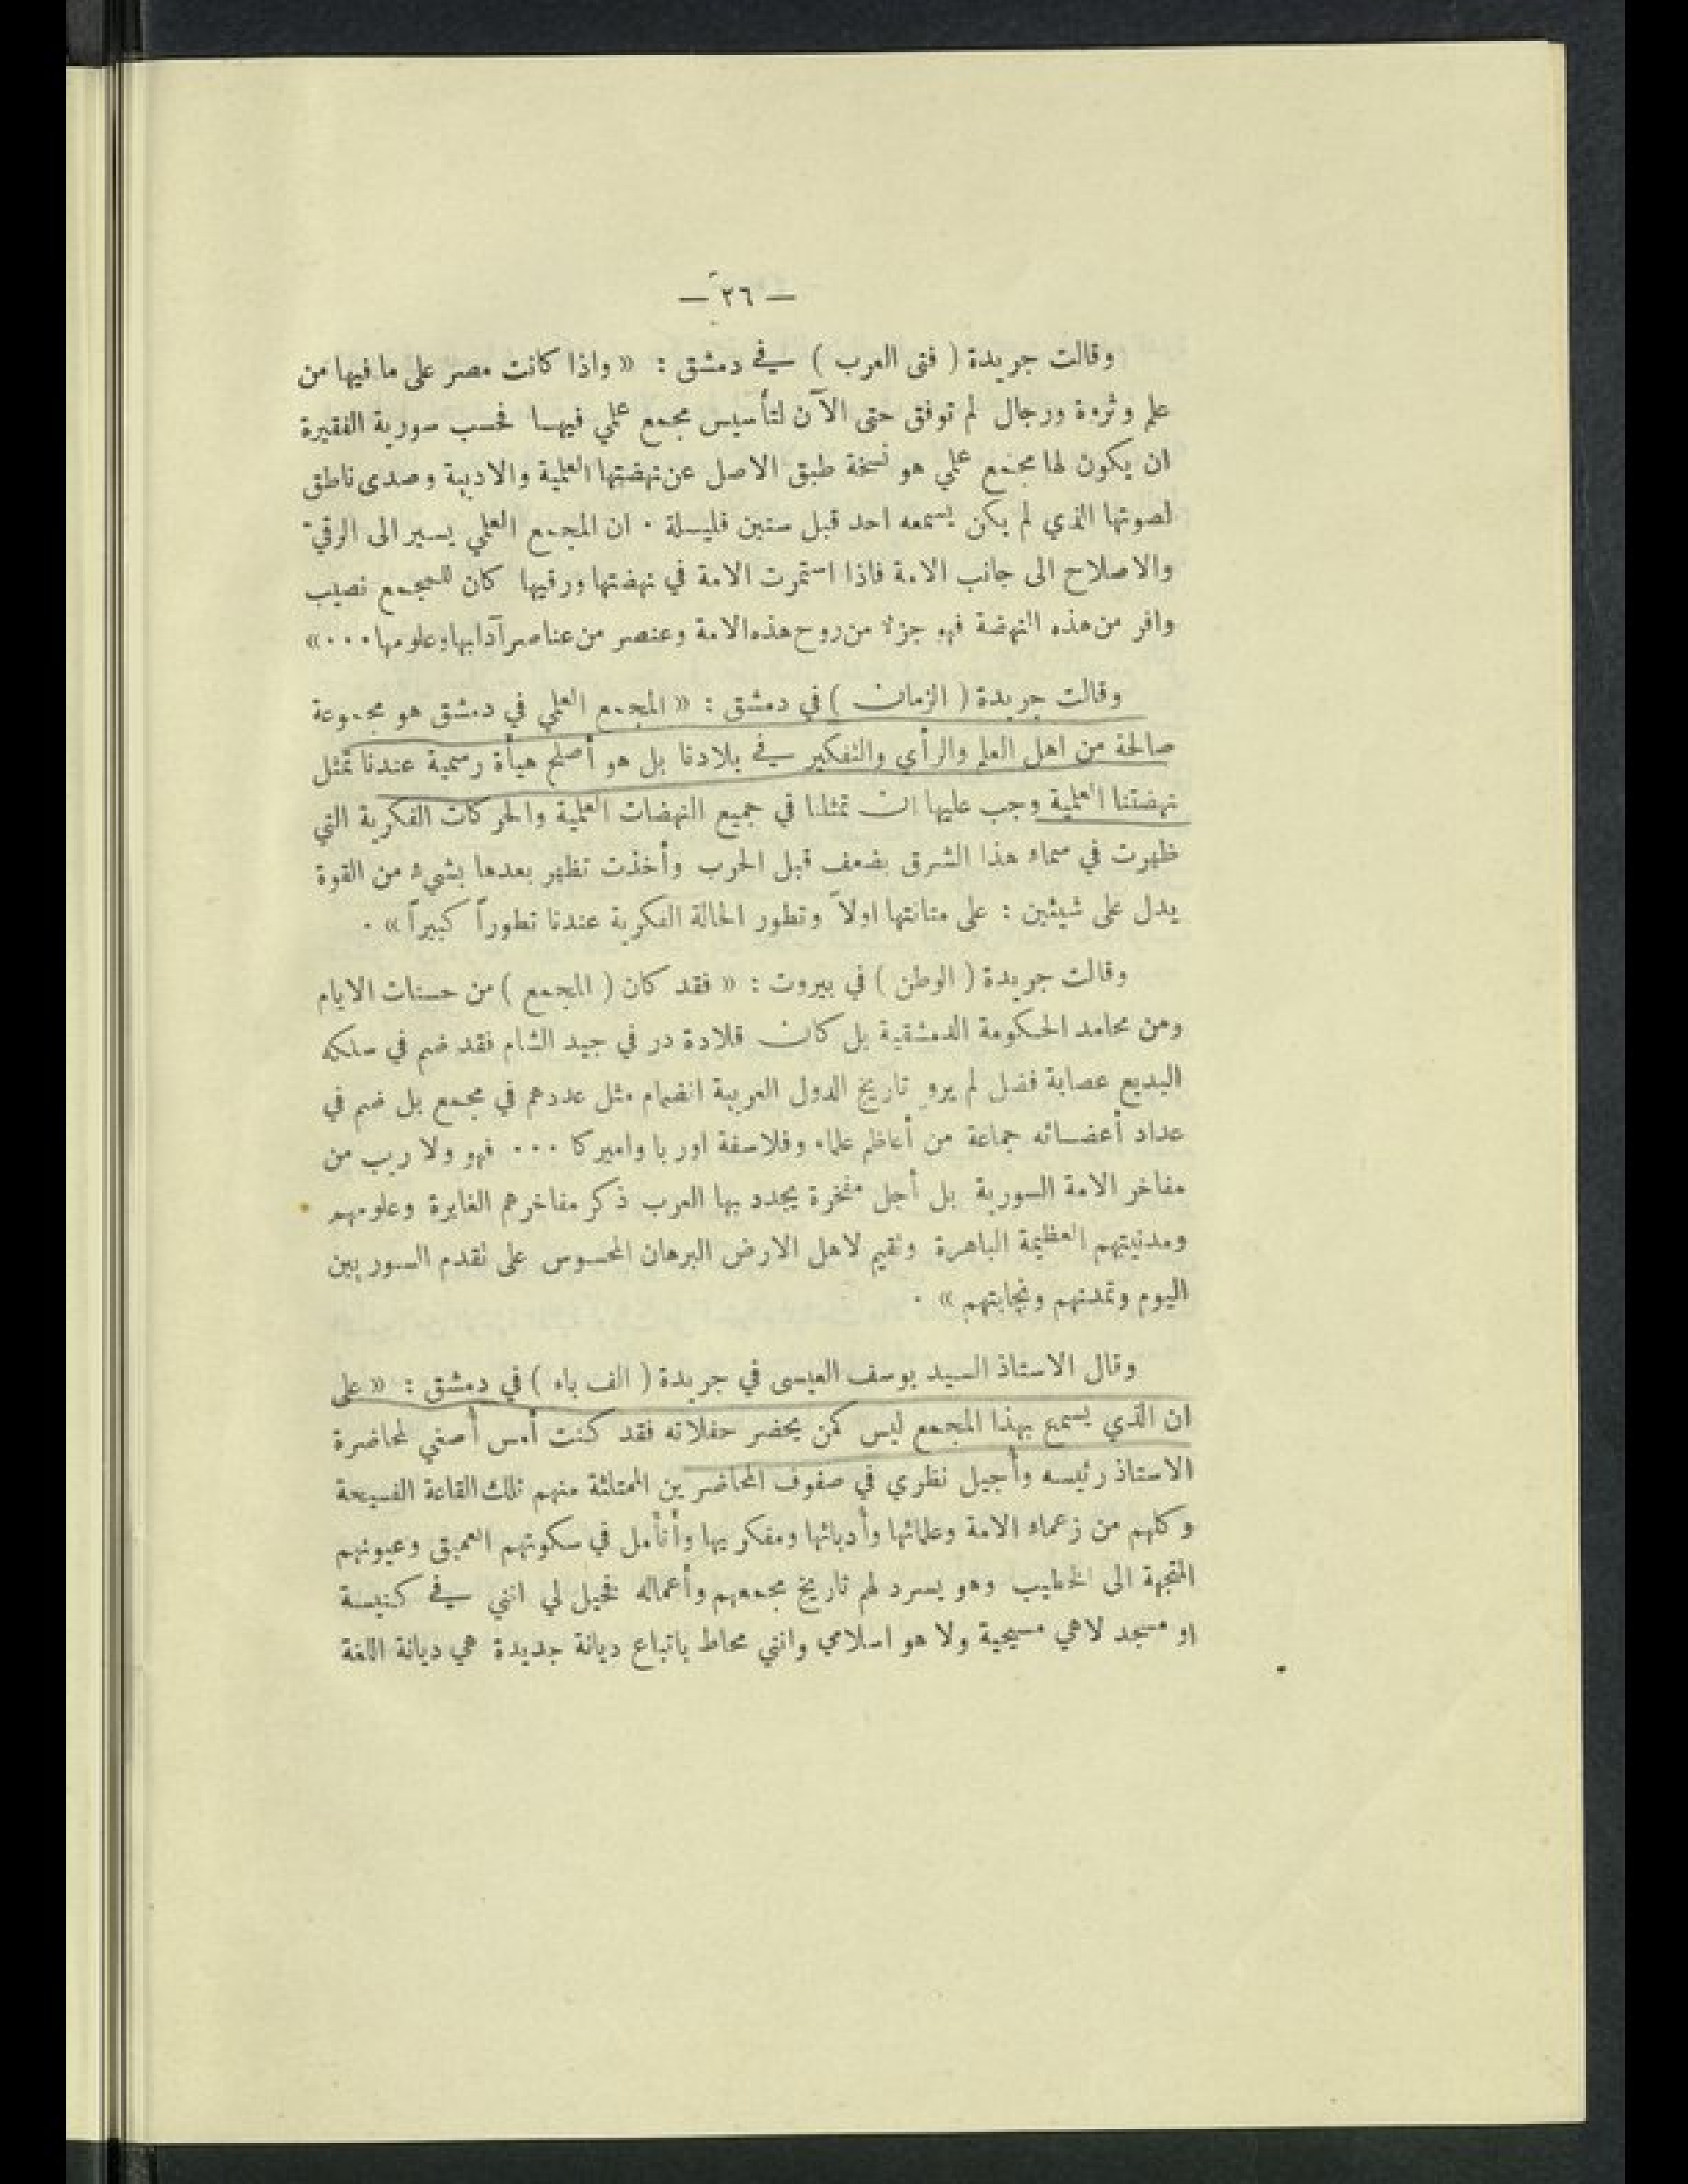 — ٢٦ —
وقالت جريدة ( فتى العرب ) في دمشق : « واذا كانت مصر على ما فيها من
علم وثروة ورجال لم توفق حتى الآن لتأسيس مجمع علمي فيها فحسب سورية الفقيرة
ان يكون لها مجمع علمي هو نسخة طبق الاصل عن نهضتها العلمية والادبية وصدى ناطق
لصوتها الذي لم يكن يسمعه احد قبل سنين قليلة . ان المجمع العلمي يسير الى الرقيّ
والاصلاح الى جانب الامة فاذا استمرت الامة في نهضتها ورقيها كان للمجمع نصيب
وافر من هذه النهضة فهو جزء من روح هذه الامة وعنصر من عناصر آدابها وعلومها . . . »
وقالت جريدة ( الزمان ) في دمشق : « المجمع العلمي في دمشق هو مجموعة
صالحة من اهل العلم والرأي والتفكير في بلادنا بل هو أصلح هيأة رسمية عندنا تمثل
نهضتنا العلمية وجب عليها ان تمثلنا في جميع النهضات العلمية والحركات الفكرية التي
ظهرت في سماء هذا الشرق بضعف قبل الحرب وأخذت تظهر بعدها بشيء من القوة
يدل على شيئين : على متانتها اولاً وتطور الحالة الفكرية عندنا تطوراً كبيراً » .
وقالت جريدة ( الوطن ) في بيروت : « فقد كان ( المجمع ) من حسنات الايام
ومن محامد الحكومة الدمشقية بل كان قلادة در في جيد الشام فقد ضم في سلكه
البديع عصابة فضل لم يروِ تاريخ الدول العربية انضمام مثل عددهم في مجمع بل ضم في
عداد أعضائه جماعة من أعاظم علماء وفلاسفة اوربا واميركا . . . فهو ولا ريب من
مفاخر الامة السورية بل أجل مفخرة يجدد بها العرب ذكر مفاخرهم الغابرة وعلومهم
ومدنيتهم العظيمة الباهرة وتقيم لاهل الارض البرهان المحسوس على تقدم السوريين
اليوم وتمدنهم ونجابتهم » .
وقال الاستاذ السيد يوسف العيسى في جريدة ( الف باء ) في دمشق : « على
ان الذي يسمع بهذا المجمع ليس كمن يحضر حفلاته فقد كنت أمس أصغي لمحاضرة
الاستاذ رئيسه وأجيل نظري في صفوف المحاضرين الممتلئة منهم تلك القاعة الفسيحة
وكلهم من زعماء الامة وعلمائها وأدبائها ومفكريها وأتأمل في سكوتهم العميق وعيونهم
المتجهة الى الخطيب وهو يسرد لهم تاريخ مجمعهم وأعماله فخيل لي انني في كنيسة
او مسجد لا هي مسيحية ولا هو اسلامي وانني محاط باتباع ديانة جديدة هي ديانة اللغة